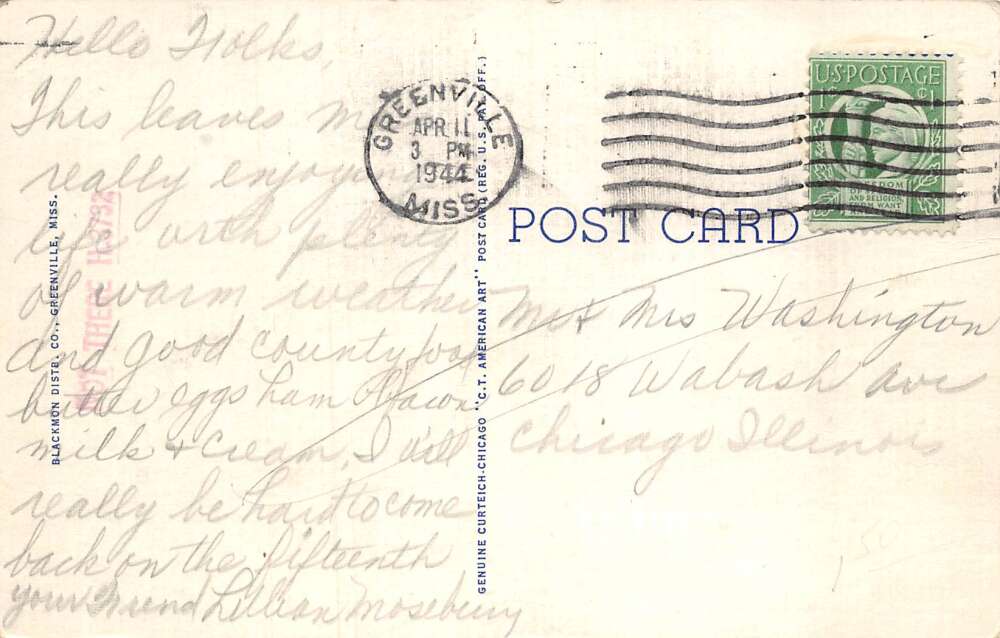 Hello Folks,
This leaves me
really enjoying
life with plenty
of warm weather
and good county food
butter eggs ham & bacon
milk & cream, I will
really be hard to come
back on the fifteenth
your Friend Lillian Moseberry
BLACKMON DISTB. CO., GREENVILLE, MISS.
GENUINE CURTEICH-CHICAGO "C.T. AMERICAN ART" POST CARD (REG. U.S. PAT. OFF.)
GREENVILLE
APR 11
3 PM
1944
MISS.
U.S. POSTAGE
1¢ ¢1
AND RELIGION
FROM WANT
POST CARD
Mr & Mrs Washington
6018 Wabash Ave
Chicago Illinois